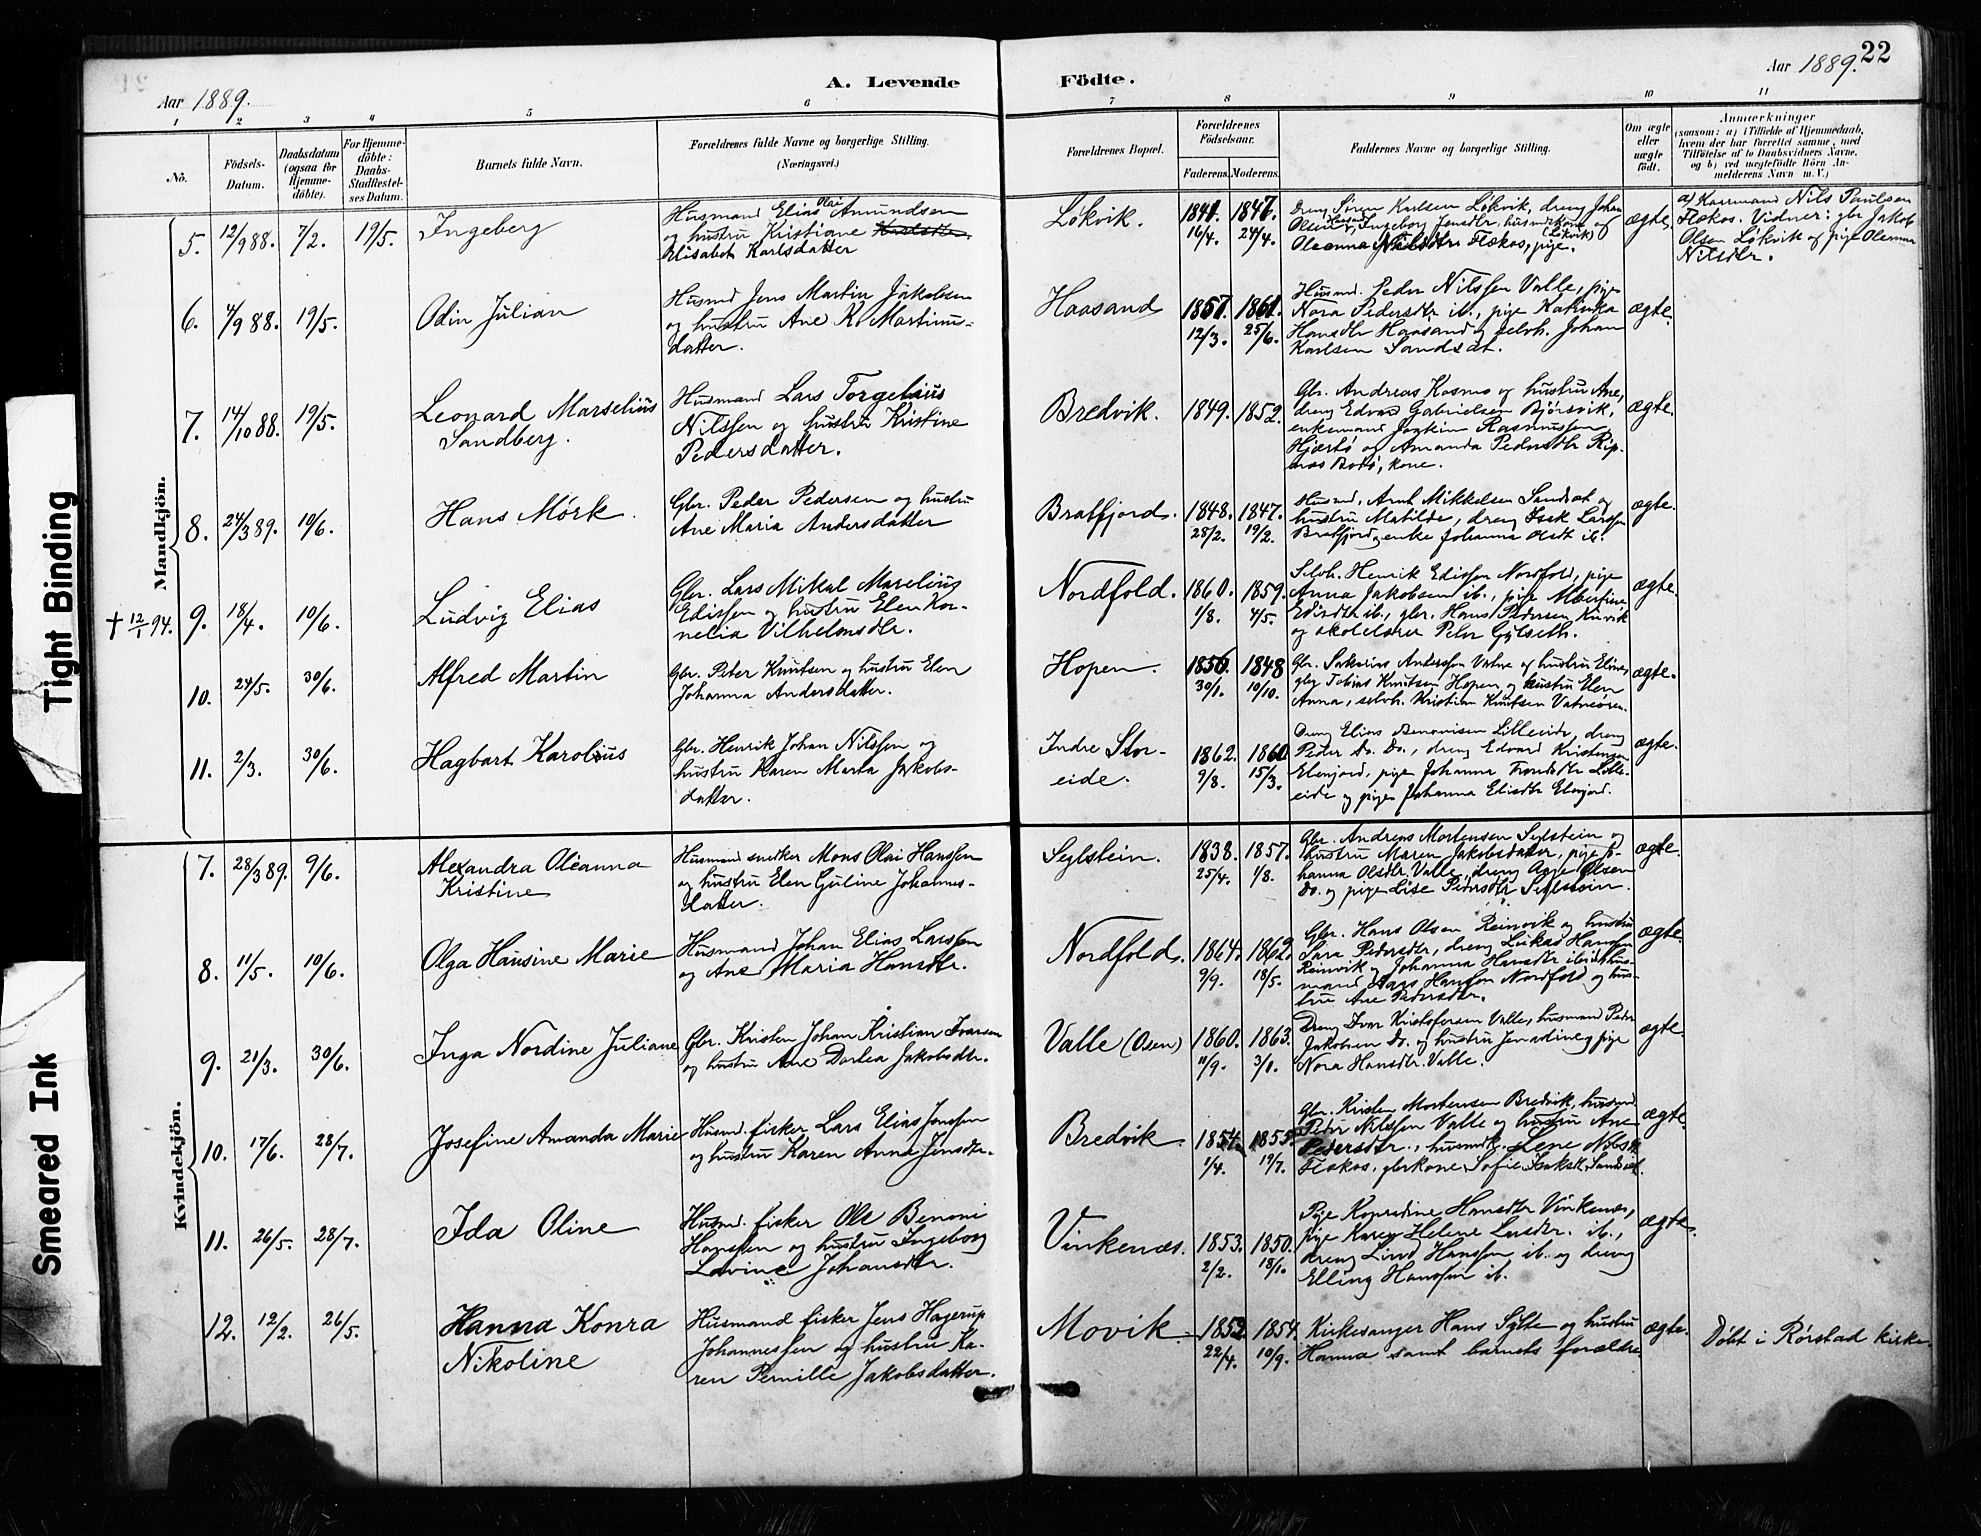 Aar 1889.
A. Levende
Födte.
Aar 1889.
22
1 2 3 4 5 6 7 8 9 10 11
No.
Födsels-
Datum.
Daabsdatum
(ogsaa for
Hjemme-
döbte).
For Hjemme-
döbte:
Daabs-
Stadfæstel-
ses Datum.
Barnets fulde Navn.
Forældrenes fulde Navne og borgerlige Stilling.
(Næringsvei.)
Forældrenes Bopæl.
Forældrenes
Födselsaar.
Faderens. Moderens.
Faddernes Navne og borgerlige Stilling.
Om ægte
eller
uægte
födt.
Anmærkninger
(saasom: a) i Tilfælde af Hjemmedaab,
hvem der har forrettet samme, med
Tilföielse af to Daabsvidners Navne,
og b) ved uægtefödte Börn An-
melderens Navn m. V.)
Mandkjön.
5. 12/9 88. 7/2. 19/5. Ingeberg
Husmand Elias Olai Amundsen
og hustru Kristiane
Elisabet Karlsdatter
Løkvik. 1841. 1847.
16/4. 24/4.
Dreng Sören Karlsen Løkvik, dreng Johan
Olsen, Ingeborg Jensdtr. husmdskone (Løkvik) og
Oleanna Nilsdtr Flekos, pige.
ægte.
a) Kaarmand Nils Paulsen
Flokos. Vidner: gbr Jakob
Olsen Løkvik og pige Oleanna
Nilsdtr.
6. 4/9 88. 19/5. Odin Julian
Husmd Jens Martin Jakobsen
og hustru Ane K. Martinus-
datter.
Haasand 1857. 1861.
12/3. 25/6.
Husmd. Peder Nilssen Valle, pige
Nora Pedersdtr ib., pige Katinka
Hansdtr Haasand og selvh. Johan
Karlsen Sandsæt.
ægte.
7. 14/10 88. 19/5. Leonard Marselius
Sandberg.
Husmand Lars Torgelaus
Nilssen og hustru Kristine
Pedersdatter.
Bredvik. 1849. 1852.
Gbr. Andreas Kosmo og hustru Ane,
dreng Edvard Gabrielsen Bjørsvik,
enkemand Joakim Rasmussen
Hjærtø og Amanda Pedersdtr Rip-
nes Bodø, kone.
ægte.
8. 24/3 89. 10/6. Hans Mörk.
Gbr. Peder Pedersen og hustru
Ane Maria Andersdatter
Bratfjord. 1848. 1847.
28/2. 19/2.
Husmd. Arnt Mikkelsen Sandsæt og
hustru Matilde, dreng Isak Larssen
Bratfjord, enke Johanna Olsdtr ib.
ægte.
† 12/1 94. 9. 18/4. 10/6. Ludvig Elias
Gbr. Lars Mikal Marelius
Edissen og hustru Elen Kor-
nelia Vilhelmsdtr.
Nordfold. 1860. 1859.
1/8. 4/5.
Selvh. Henrik Edissen Nordfold, pige
Anna Jakobsen ib., pige Albertine
Edisdtr ib., gbr. Hans Pedersen Kirvik
og skolelærer Peter Gylseth.
ægte.
10. 24/5. 30/6. Alfred Martin
Gbr. Peter Knutsen og hustru Elen
Johanna Andersdatter.
Hopen. 1856. 1848
30/1. 10/10.
Gbr. Sakarias Anderssen Vatne og hustru Elina,
gbr Tobias Knutsen Hopen og hustru Elen
Anna, selvh. Kristian Knutsen Vatneören.
ægte.
11. 2/3. 30/6. Hagbart Karolius
Gbr. Henrik Johan Nilssen og
hustru Karen Marta Jakobs-
datter.
Indre Stor-
eide. 1862. 1860
9/8. 15/3.
Dreng Elias Benonisen Lilleeide, dreng
Peder do. do., dreng Edvard Kristensen
Elvejord, pige Johanna Trondsdtr Lille-
eide og pige Johanna Elisdtr Elvejord.
ægte.
Kvindekjön.
7. 28/3 89. 9/6. Alexandra Oleanna
Kristine
Husmand snedker Mons Olai Hanssen
og hustru Elen Guline Johannes-
datter.
Seglstein. 1838. 1857.
25/4. 1/8.
Gbr. Andreas Mortensen Seglstein og
hustru Maren Jakobsdatter, pige Jo-
hanna Olsdtr. Valle, dreng Aage Olsen
do. og pige Lise Pedersdtr Seglstein.
ægte.
8. 11/5. 10/6. Olga Hansine Marie
Husmand Johan Elias Larssen
og Ane Maria Hansdtr.
Nordfold. 1864. 1862.
9/9. 18/5.
Gbr. Hans Olsen Reinvik og hustru
Sara Pedersdtr, dreng Lukas Hanssen
Reinvik og Johanna Hansdtr ibid. hus-
mand Lars Hanssen Nordfold og hus-
tru Ane Pedersdtr.
ægte.
9. 21/3. 30/6. Inga Nordine Juliane
Gbr. Kristen Johan Kristian Ivarsen
og hustru Ane Dorlea Jakobsdtr.
Valle (Osen) 1860. 1863.
11/9. 3/1.
Dreng Ivar Kristofersen Valle, husmand Peder
Jakobsen do. og hustru Jenadine, pige
Nora Hansdtr. Valle.
ægte.
10. 17/6. 28/7. Josefine Amanda Marie
Husmd. fisker Lars Elias Jenssen
og hustru Karen Anna Jensdtr.
Bredvik. 1854. 1855.
1/4. 19/7.
Gbr. Kristen Mortensen Bredvik, husmd
Peder Nilssen Valle og hustru Ane
Pedersdtr., husmdk. Lene Nilsdtr
Flokos, gbrkone Sofie Isaksdtr. Sandsæt
ægte.
11. 26/5. 28/7. Ida Oline
Husmd. fisker Ole Benoni
Hanssen og hustru Ingeborg
Lovine Johansdtr.
Vinkenæs. 1853. 1850.
2/2. 18/1.
Pige Konradine Hansdtr Vinkenæs,
pige Karen Helene Larsdtr. ib.,
dreng Lind Hanssen ib. og dreng
Elling Hanssen ib.
ægte.
12. 12/2. 26/5. Hanna Konra
Nikoline
Husmand fisker Jens Hagerup
Johannessen og hustru Ka-
ren Pernille Jakobsdatter.
Movik. 1853 1854.
22/4. 10/9.
Kirkesanger Hans Sylte og hustru
Hanna samt barnets forældre.
ægte.
Döbt i Rörstad kirke.
Tight Binding
Smeared Ink